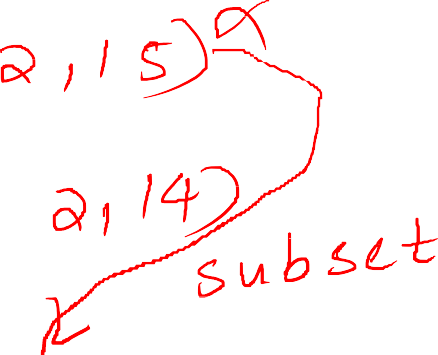 2,15) α
2,14)
subset